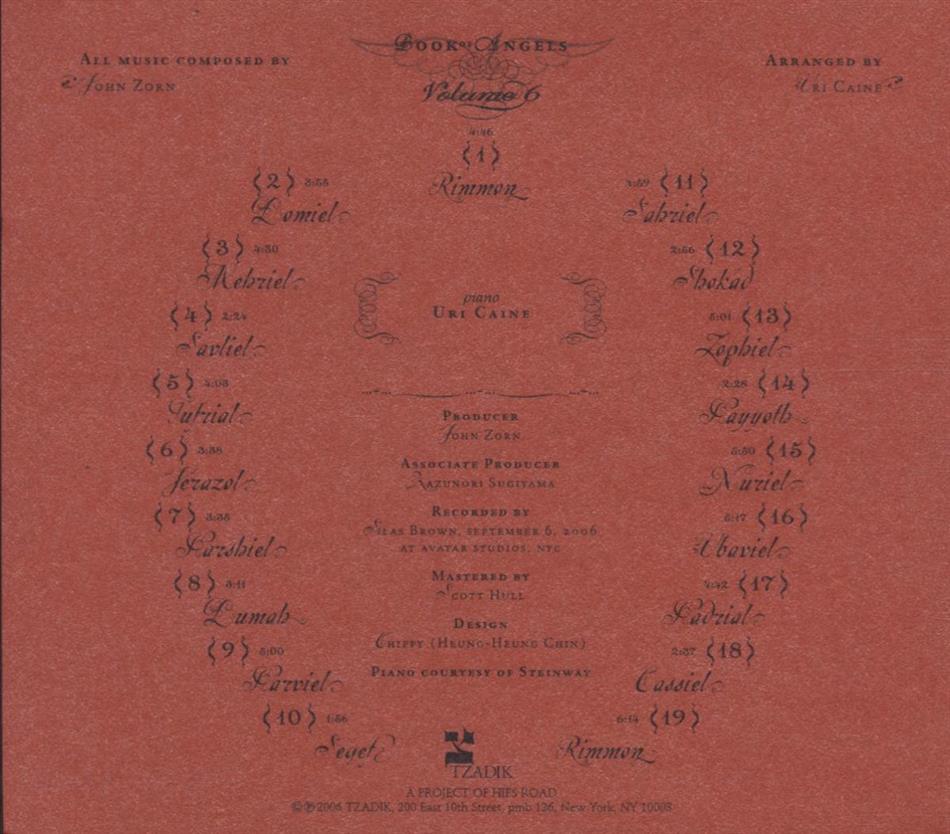 Book of Angels
Volume 6
All music composed by
John Zorn
Arranged by
Uri Caine
4:46
{1}
Rimmon
{2} 3:55
Domiel
{3} 4:30
Mehriel
{4} 2:24
Savliel
{5} 4:03
Tufrial
{6} 3:38
Jerazol
{7} 3:35
Parshiel
{8} 3:11
Dumah
{9} 5:00
Parviel
{10} 1:56
Segef
{11}
Sahriel
2:56 {12}
Shokad
5:01 {13}
Zophiel
2:28 {14}
Hayyoth
5:50 {15}
Nuriel
5:17 {16}
Ubaviel
{17}
Hadrial
2:37 {18}
Cassiel
6:14 {19}
Rimmon
piano
Uri Caine
Producer
John Zorn
Associate Producer
Kazunori Sugiyama
Recorded by
Silas Brown, September 6, 2006
at Avatar Studios, NYC
Mastered by
Scott Hull
Design
Chippy (Heung-Heung Chin)
Piano courtesy of Steinway
צ
TZADIK
A PROJECT OF HIPS ROAD
©℗ 2006 TZADIK, 200 East 10th Street, pmb 126, New York, NY 10003